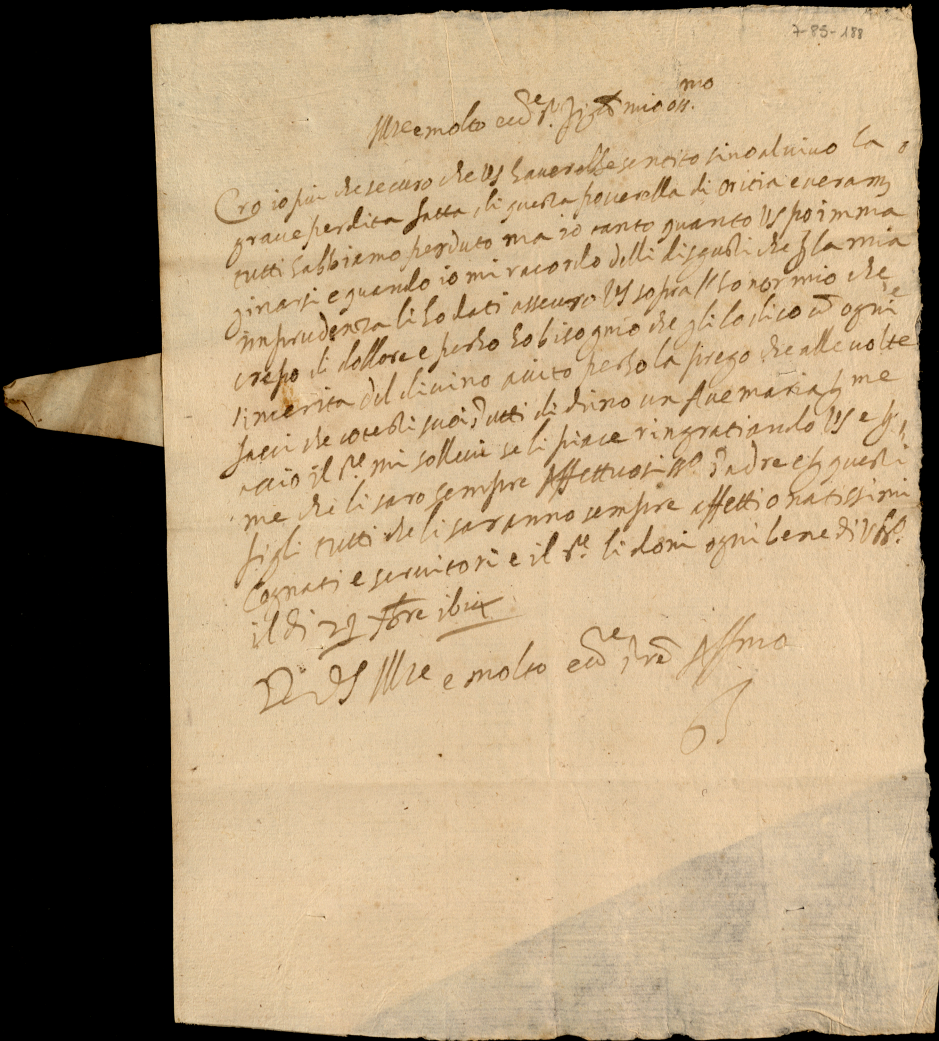 7-85-188
Ill.re e molto ecc.e S.r mio oss.mo
Cro io piu che securo che VS haverebbe sentito sino al vivo la
grave perdita fatta di questa poverella di Oritia e veram.
tutti habbiamo perduto ma io tanto quanto VS po imma
ginarsi e quando io mi racordo delli disgusti che p la mia
imprudenza li ho dati assecuro VS sopra l'honor mio che
crepo di dollore e perho ho bisognio che gli lo dico cō ogni
sincerita del divino aiuto perho la prego che alle volte
facci che cotesti suoi tutti dichino un Ave maria p me
accio il S.re mi sollevi se li piace ringratiando VS e p
me che li saro sempre Affettuosiss.o Padre e p questi
figli tutti che li saranno sempre affettionatissimi
Cognati e servitori e il S.re li doni ogni bene di
il di 29 Xbre
Di VS Ill.re e molto ecc.e Aff.mo